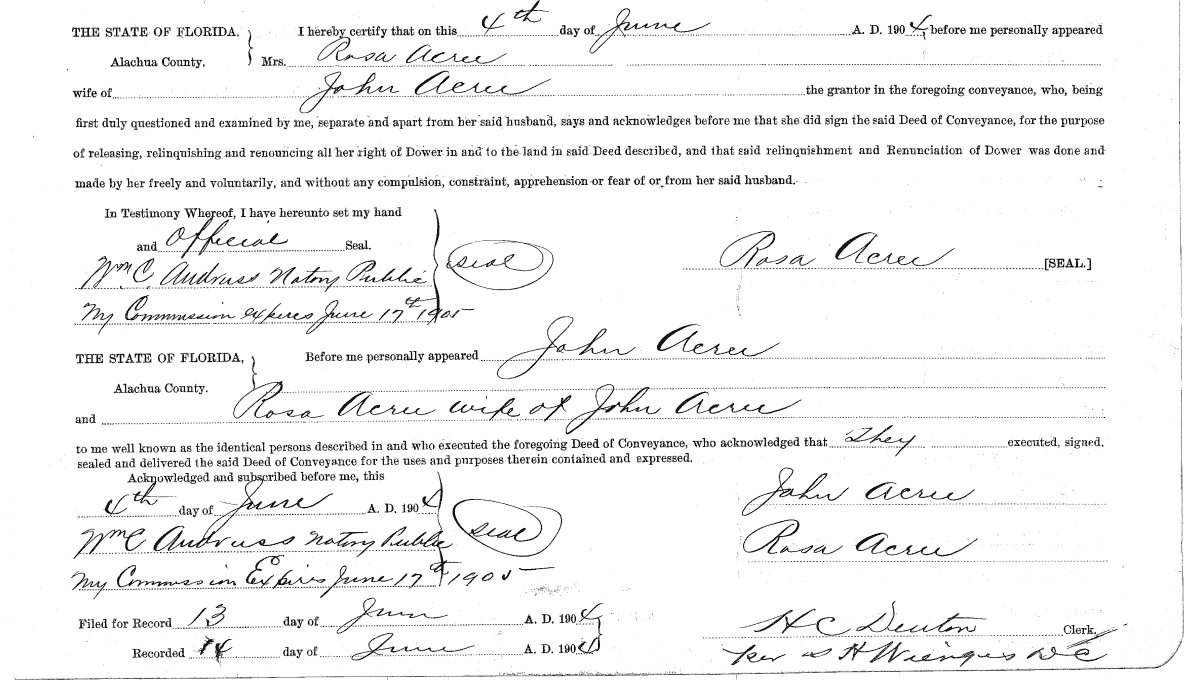 THE STATE OF FLORIDA. } I hereby certify that on this 4th day of June A. D. 1904 before me personally appeared
Alachua County. Mrs. Rosa Acree
wife of John Acree the grantor in the foregoing conveyance, who, being
first duly questioned and examined by me, separate and apart from her said husband, says and acknowledges before me that she did sign the said Deed of Conveyance, for the purpose
of releasing, relinquishing and renouncing all her right of Dower in and to the land in said Deed described, and that said relinquishment and Renunciation of Dower was done and
made by her freely and voluntarily, and without any compulsion, constraint, apprehension or fear of or from her said husband.
In Testimony Whereof, I have hereunto set my hand
and Official Seal.
seal
Rosa Acree [SEAL.]
Wm C. Andruss Notory Public
My Commission expires June 17th 1905
THE STATE OF FLORIDA, } Before me personally appeared John Acree
Alachua County.
and Rosa Acree wife of John Acree
to me well known as the identical persons described in and who executed the foregoing Deed of Conveyance, who acknowledged that They executed, signed,
sealed and delivered the said Deed of Conveyance for the uses and purposes therein contained and expressed.
Acknowledged and subscribed before me, this
4th day of June A. D. 1904
John Acree
seal
Wm C Andruss Notory Public
Rosa Acree
My Commission Expires June 17th 1905
Filed for Record 13 day of June A. D. 1904
H C Denton Clerk.
Recorded 14 day of June A. D. 1904
per H Wienges D C